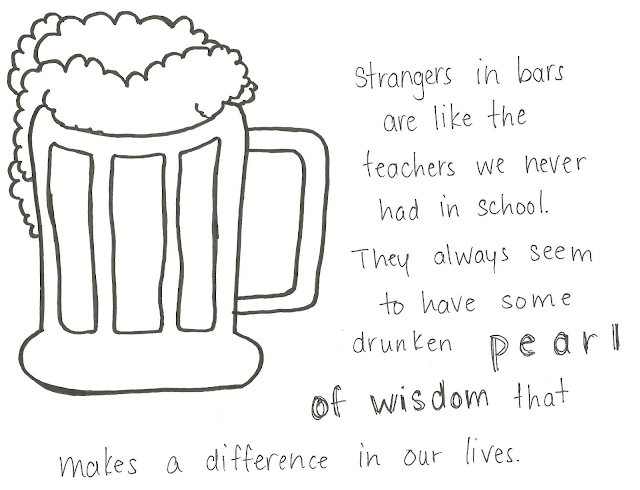 Strangers in bars
are like the
teachers we never
had in school.
They always seem
to have some
drunken pearl
of wisdom that
makes a difference in our lives.